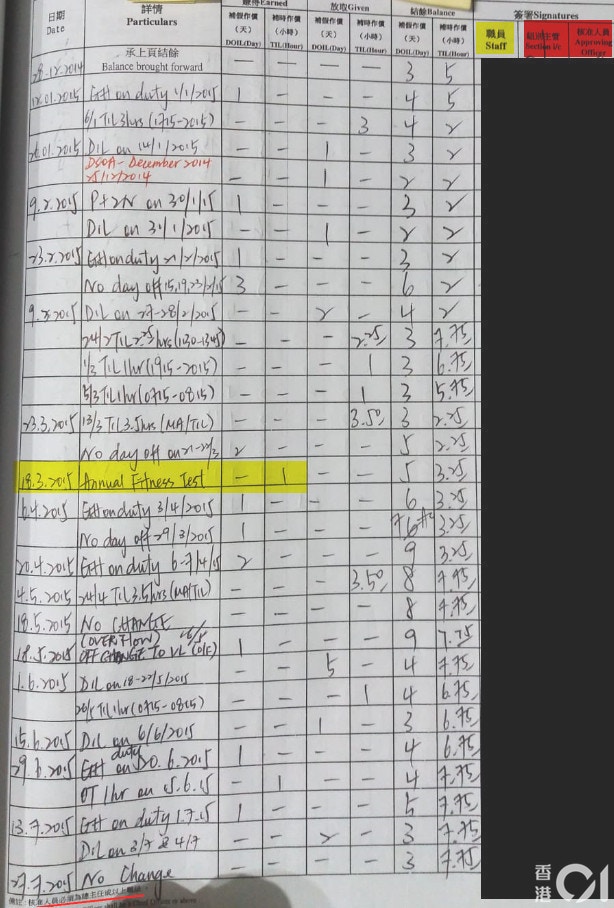 日期 Date 詳情 Particulars 賺得Earned 放取Given 結餘Balance 簽署Signatures
補假作償 (天) DOIL(Day) 補時作償 (小時) TIL(Hour) 補假作償 (天) DOIL(Day) 補時作償 (小時) TIL(Hour) 補假作償 (天) DOIL(Day) 補時作償 (小時) TIL(Hour) 職員 Staff 組別主管 Section I/c 核准人員 Approving Officer
28.12.2014 承上頁結餘 Balance brought forward – – – – 3 5
12.01.2015 GH on duty 1/1/2015 1 – – – 4 5
6/1 TIL 3hrs (1715-2015) – – – 3 4 2
26.01.2015 DIL on 14/1/2015 – – 1 – 3 2
DSOA - December 2014
25/12/2014 – – 1 – 2 2
9.2.2015 on 30/1/15 1 – – – 3 2
DIL on 31/1/2015 – – 1 – 2 2
23.2.2015 GH on duty 21/2/2015 1 – – – 3 2
No day off 15,19,23/2/15 3 – – – 6 2
9.3.2015 DIL on 27-28/2/2015 – – 2 – 4 2
24/2 TIL 2.25hrs (1130-1345) – – – 2.25 3 7.75
1/3 TIL 1hr (1915-2015) – – – 1 3 6.75
5/3 TIL 1hr (0715-0815) – – – 1 3 5.75
23.3.2015 13/3 TIL 3.5hrs (MA/TIL) – – – 3.50 3 2.25
No day off on 21-22/3 2 – – – 5 2.25
18.3.2015 Annual Fitness Test – 1 – – 5 3.25
6.4.2015 GH on duty 3/4/2015 1 – – – 6 3.25
No day off 29/3/2015 1 – – – 3.25
20.4.2015 GH on duty 6-7/4/15 2 – – – 9 3.25
4.5.2015 24/4 TIL 3.5hrs (MA/TIL) – – – 3.50 8 7.75
18.5.2015 NO CHANGE – – – – 8 7.75
(OVERFLOW)
18.5.2015 OFF CHANGE TO VL 1 – – – 9 7.75
1.6.2015 DIL on 18-22/5/2015 – – 5 – 4 7.75
20/5 TIL 1hr (0715-0815) – – – 1 4 6.75
15.6.2015 DIL on 6/6/2015 – – 1 – 3 6.75
29.6.2015 GH on duty 20.6.2015 1 – – – 4 6.75
OT 1hr on 15.6.15 – 1 – – 4 7.75
13.7.2015 GH on duty 1.7.15 1 – – – 5 7.75
DIL on 3/7 & 4/7 – – 2 – 3 7.75
27.7.2015 No Change – – – – 3 7.75
備註: 核准人員必須為總主任或以上職級
香港01